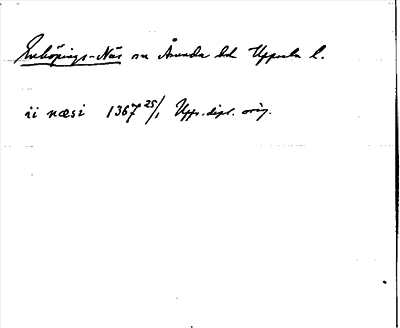 Enköpings-Näs sn Åsunda hd Uppsala l.
ii næsi 1367 25/1 Upps. dipl. orig.